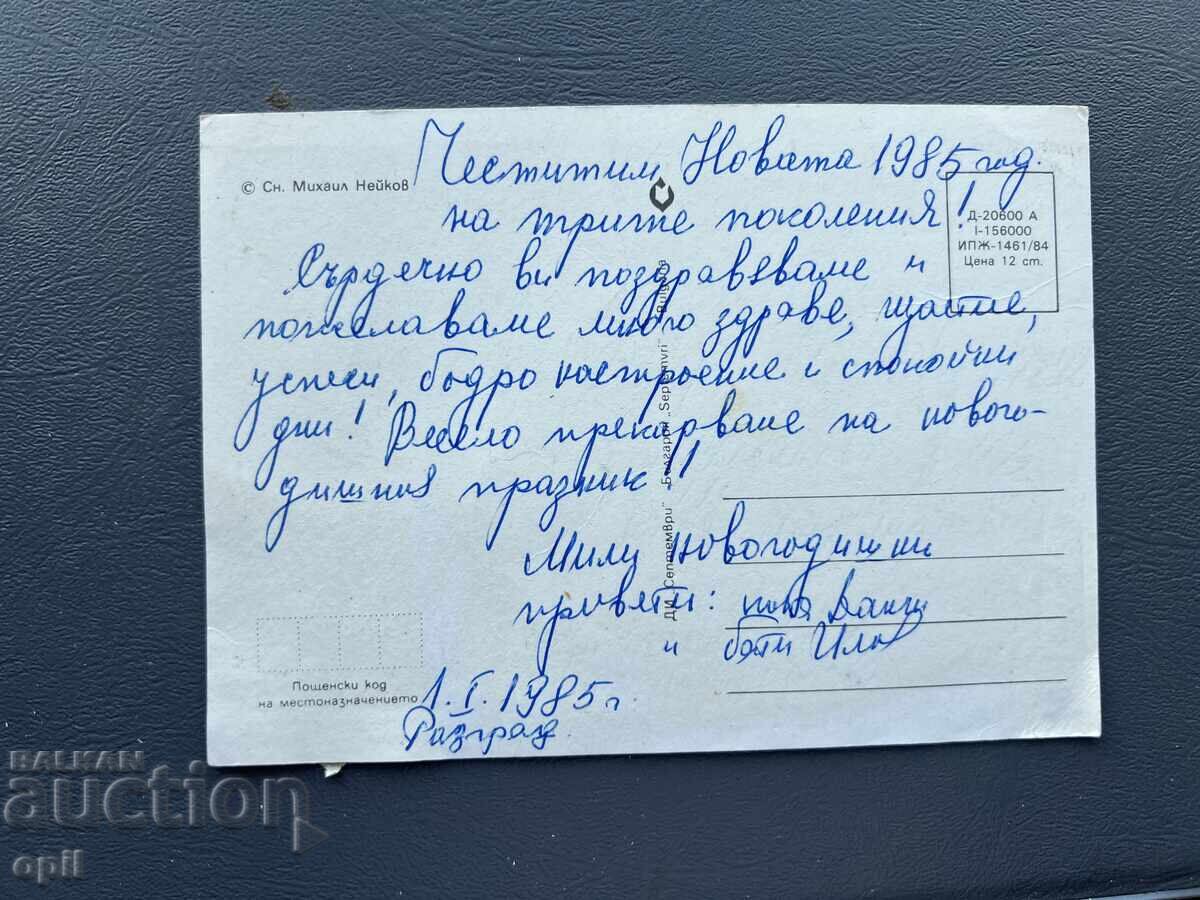 Честитим Новата 1985 год.
на трите поколения!
Сърдечно ви поздравяваме и
пожелаваме много здраве, щастие,
успехи, бодро настроение и спокойни
дни! Весело прекарване на нового-
дишния празник!!
Мили новогодишни
привети:
и бати Илия
1.I.1985 г.
Разград
© Сн. Михаил Нейков
Д-20600 А
I-156000
ИПЖ-1461/84
Цена 12 ст.
ДИ „Септември" България „Septemvri" Bulgaria
Пощенски код
на местоназначението
BALKAN
auction
opil